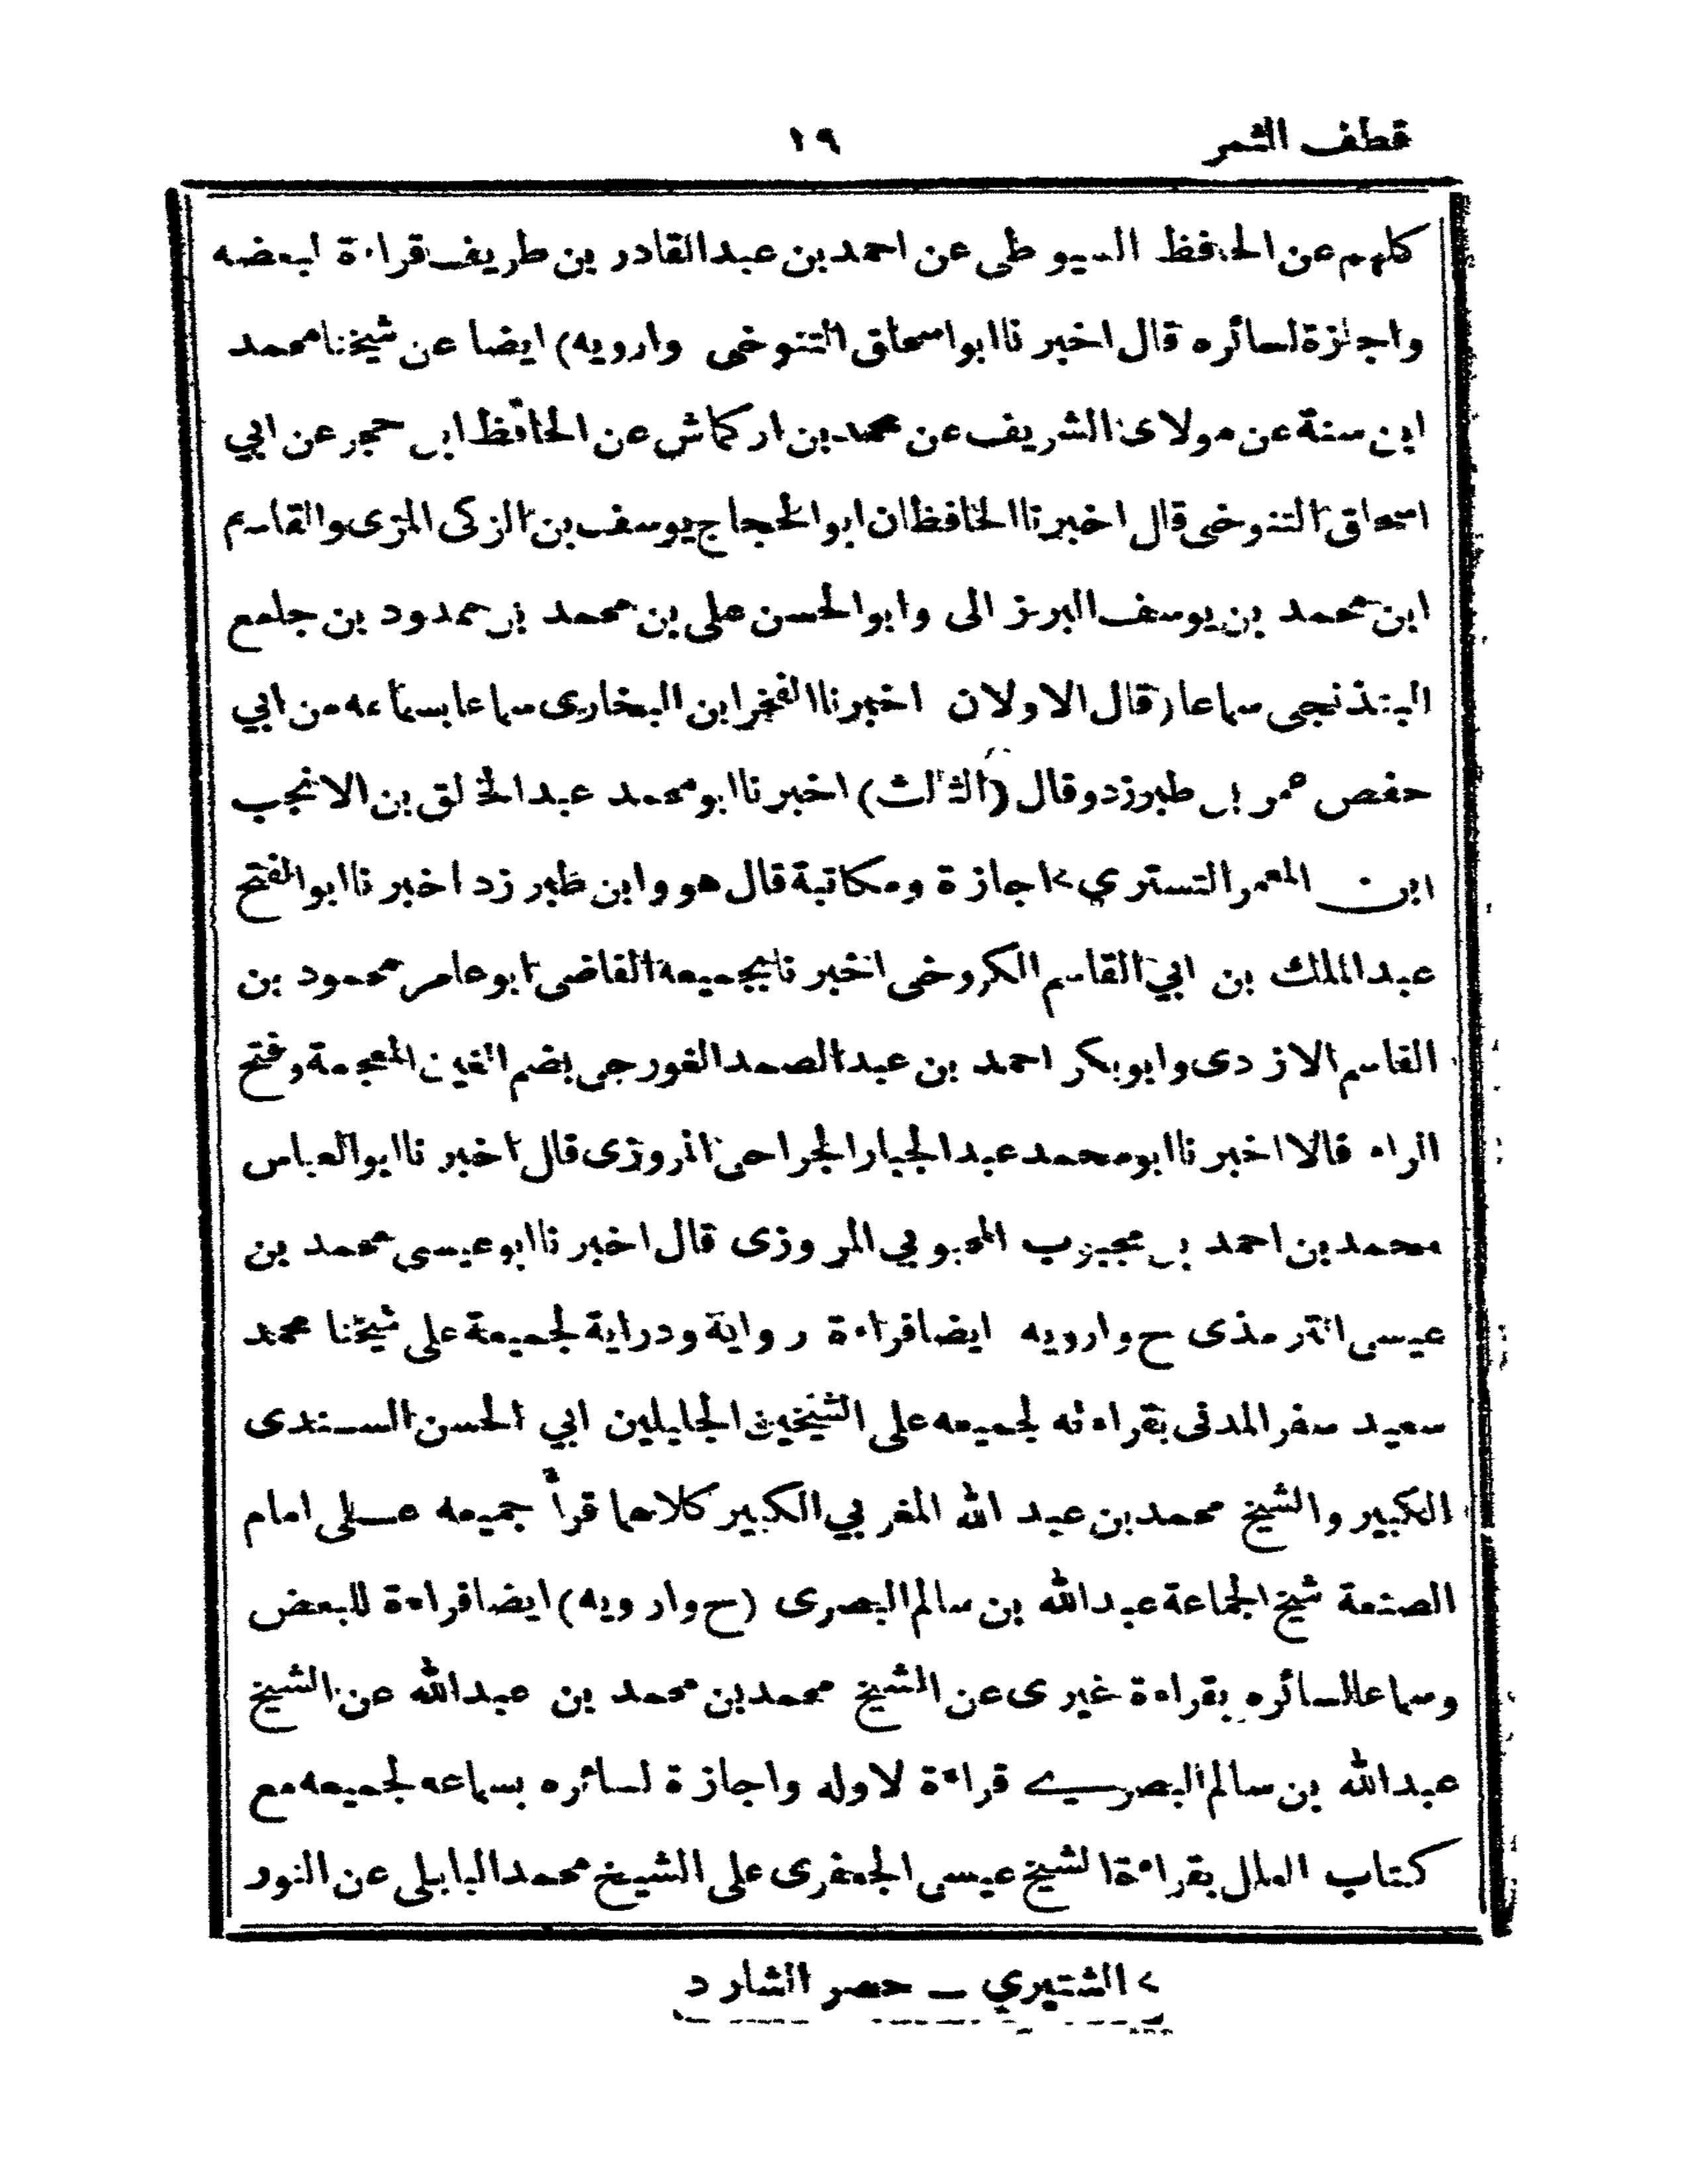 قطف الثمر
١٩
كلهم عن الحافظ السيوطى عن احمد بن عبد القادر بن طريف قراءة لبعضه
واجازة لسائره قال اخبرنا ابو اسحاق التنوخى وارويه) ايضا عن شيخنا محمد
ابن سنة عن مولاى الشريف عن محمد بن اركماش عن الحافظ ابن حجر عن ابي
اسحاق التنوخى قال اخبرنا الحافظان ابو الحجاج يوسف بن الزكى المزى والقاسم
ابن محمد بن يوسف البرزالى وابو الحسن على بن محمد بن ممدود بن جامع
البنذنجى سماعا (قال الاولان اخبرنا الفخر ابن البخارى سماعا بسماعه من ابي
حفص عمر بن طبرزد وقال (الثالث) اخبرنا ابو محمد عبد الخالق بن الانجب
ابن المعمر التستري > اجازة ومكاتبة قال هو وابن طبرزد اخبرنا ابو الفتح
عبد الملك بن ابي القاسم الكروخى اخبرنا بجميعه القاضى ابو عامر محمود بن
القاسم الازدى وابو بكر احمد بن عبد الصمد الغورجى بضم الغين المعجمة وفتح
الراء قالا اخبرنا ابو محمد عبد الجبار الجراحى المروزى قال اخبرنا ابو العباس
محمد بن احمد بن محبوب المحبوبي المروزى قال اخبرنا ابو عيسى محمد بن
عيسى الترمذى ح وارويه ايضا قراءة رواية ودراية لجميعه على شيخنا محمد
سعيد سفر المدنى بقراءته لجميعه على الشيخين الجليلين ابي الحسن السندى
الكبير والشيخ محمد بن عبد الله المغربي الكبير كلاهما قرأ جميعه على امام
الصنعة شيخ الجماعة عبد الله بن سالم البصرى (ح وارويه) ايضا قراءة للبعض
وسماعا لسائره بقراءة غيرى عن الشيخ محمد بن محمد بن عبد الله عن الشيخ
عبد الله بن سالم البصري قراءة لاوله واجازة لسائره بسماعه لجميعه مع
كتاب العلل بقراءة الشيخ عيسى الجعفرى على الشيخ محمد البابلى عن النور
> الشتيري - حصر الشارد